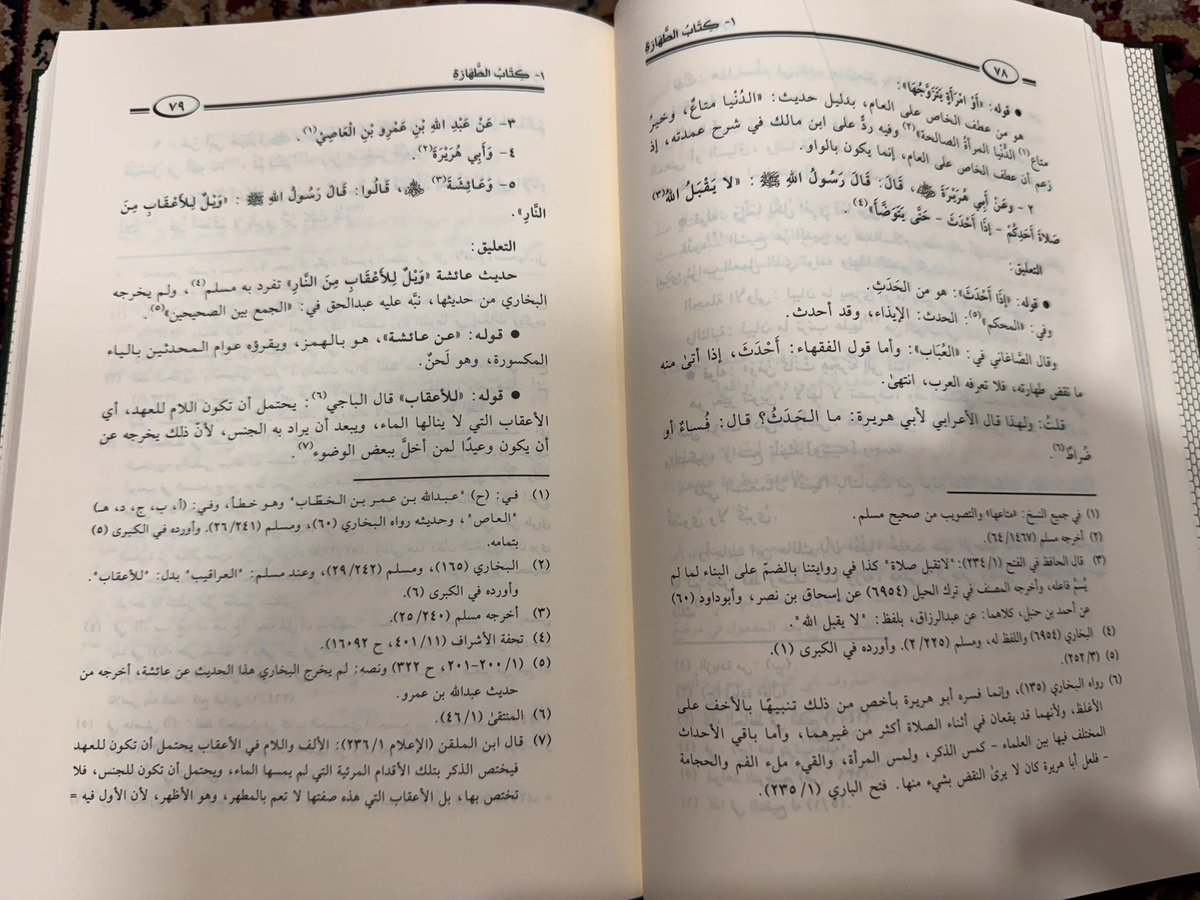 ١- كِتَابُ الطَّهَارَةِ
٧٨
● قوله: «أَوْ امْرَأَةٍ يَتَزَوَّجُهَا»:
هو من عطف الخاص على العام، بدليل حديث: «الدُنْيا متاعٌ، وخيرُ
متاع(١) الدُّنْيا المرأةُ الصالحة»(٢) وفيه ردٌّ على ابن مالك في شرح عمدته، إذ
زعم أن عطف الخاص على العام، إنما يكون بالواو.
٢- وعَنْ أَبِي هُرَيْرَةَ ﵁، قَالَ: قَالَ رَسُولُ اللهِ ﷺ: «لا يَقْبَلُ اللهُ(٣)
صَلاةَ أَحَدِكُمْ - إِذَا أَحْدَثَ - حَتَّى يَتَوَضَّأَ»(٤).
التعليق:
● قوله: «إِذَا أَحْدَثَ»: هو من الحَدَثِ.
وفي: «المحكم»(٥). الحدث: الإيذاء، وقد أحدث.
وقال الصَّاغاني في: «العُبَاب»: وأما قول الفقهاء: أَحْدَثَ، إذا أتىٰ منه
ما نقض طهارته، فلا تعرفه العرب، انتهىٰ.
قلتُ: ولهذا قال الأعرابي لأبي هريرة: ما الحَدَثُ؟ قال: فُساءٌ أو
ضُراطٌ(٦).
(١) في جميع النسخ: «متاعها» والتصويب من صحيح مسلم.
(٢) أخرجه مسلم (٦٤/١٤٦٧).
(٣) قال الحافظ في الفتح (٢٣٤/١): "لاتقبل صلاة" كذا في روايتنا بالضمّ على البناء لما لم
يُسمَّ فاعله، وأخرجه المصنف في ترك الحيل (٦٩٥٤) عن إسحاق بن نصر، وأبوداود (٦٠)
عن أحمد بن حنبل، كلاهما: عن عبدالرزاق، بلفظ: "لا يقبل الله".
(٤) البخاري (٦٩٥٤) واللفظ له، ومسلم (٢/٢٢٥). وأورده في الكبرى (١).
(٥) (٢٥٢/٣).
(٦) رواه البخاري (١٣٥)، وإنما فسره أبو هريرة بأخص من ذلك تنبيهًا بالأخف على
الأغلظ، ولأنهما قد يقعان في أثناء الصلاة أكثر من غيرهما، وأما باقي الأحداث
المختلف فيها بين العلماء - كمس الذكر، ولمس المرأة، والقيء ملء الفم والحجامة
- فلعل أبا هريرة كان لا يرىٰ النقض بشيء منها. فتح الباري (٢٣٥/١).
١- كِتَابُ الطَّهَارَةِ
٧٩
٣- عَنْ عَبْدِ اللهِ بْنِ عَمْرِو بْنِ الْعَاصِيْ(١).
٤- وَأَبِي هُرَيْرَةَ(٢).
٥- وَعَائِشَةَ(٣) ﵃، قَالُوا: قَالَ رَسُولُ اللهِ ﷺ: «وَيْلٌ لِلأَعْقَابِ مِنَ
النَّارِ».
التعليق:
حديث عائشة «وَيْلٌ لِلأَعْقَابِ مِنَ النَّارِ» تفرد به مسلم(٤)، ولم يخرجه
البخاري من حديثها، نبَّه عليه عبدالحق في: «الجمع بين الصحيحين»(٥).
● قوله: «عن عائشة»، هو بالهمز، ويقرؤه عوام المحدثين بالياء
المكسورة، وهو لَحنٌ.
● قوله: «للأعقاب» قال الباجي(٦): يحتمل أن تكون اللام للعهد، أي
الأعقاب التي لا ينالها الماء، ويبعد أن يراد به الجنس، لأنّ ذلك يخرجه عن
أن يكون وعيدًا لمن أخلَّ ببعض الوضوء(٧).
(١) في: (ح) "عبدالله بن عمر بن الخطَّاب" وهو خطأ، وفي: (أ، ب، ج، د، هـ)
"العاص"، وحديثه رواه البخاري (٦٠)، ومسلم (٢٦/٢٤١). وأورده في الكبرى (٥)
بتمامه.
(٢) البخاري (١٦٥)، ومسلم (٢٩/٢٤٢)، وعند مسلم: "العراقيب" بدل: "للأعقاب".
وأورده في الكبرى (٦).
(٣) أخرجه مسلم (٢٥/٢٤٠).
(٤) تحفة الأشراف (٤٠١/١١، ح ١٦٠٩٢).
(٥) (٢٠٠/١-٢٠١، ح ٣٢٢) ونصه: لم يخرج البخاري هذا الحديث عن عائشة، أخرجه من
حديث عبدالله بن عمرو.
(٦) المنتقىٰ (٤٦/١).
(٧) قال ابن الملقن (الإعلام ٢٣٦/١): الألف واللام في الأعقاب يحتمل أن تكون للعهد
فيختص الذكر بتلك الأقدام المرئية التي لم يمسها الماء، ويحتمل أن تكون للجنس، فلا
تختص بها، بل الأعقاب التي هذه صفتها لا تعم بالمطهر، وهو الأظهر، لأن الأول فيه =